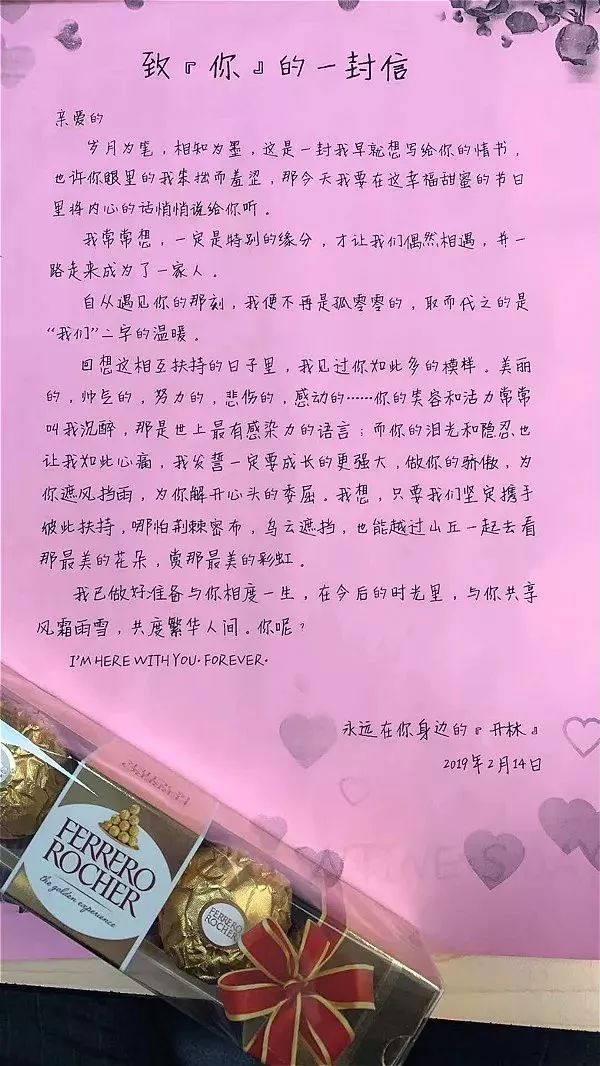 致『你』的一封信
亲爱的
岁月为笔，相知为墨，这是一封我早就想写给你的情书，
也许你眼里的我笨拙而羞涩，那今天我要在这幸福甜蜜的节日
里将内心的话悄悄说给你听。
我常常想，一定是特别的缘分，才让我们偶然相遇，并一
路走来成为了一家人。
自从遇见你的那刻，我便不再是孤零零的，取而代之的是
“我们”二字的温暖。
回想这相互扶持的日子里，我见过你如此多的模样。美丽
的，帅气的，努力的，悲伤的，感动的……你的笑容和活力常常
叫我沉醉，那是世上最有感染力的语言；而你的泪光和隐忍也
让我如此心痛，我发誓一定要成长的更强大，做你的骄傲，为
你遮风挡雨，为你解开心头的委屈。我想，只要我们坚定携手
彼此扶持，哪怕荆棘密布，乌云遮挡，也能越过山丘一起去看
那最美的花朵，赏那最美的彩虹。
我已做好准备与你相度一生，在今后的时光里，与你共享
风霜雨雪，共度繁华人间。你呢？
I'M HERE WITH YOU. FOREVER.
永远在你身边的『开林』
2019年2月14日
FERRERO
ROCHER
the golden experience
FERRERO
ROCHER